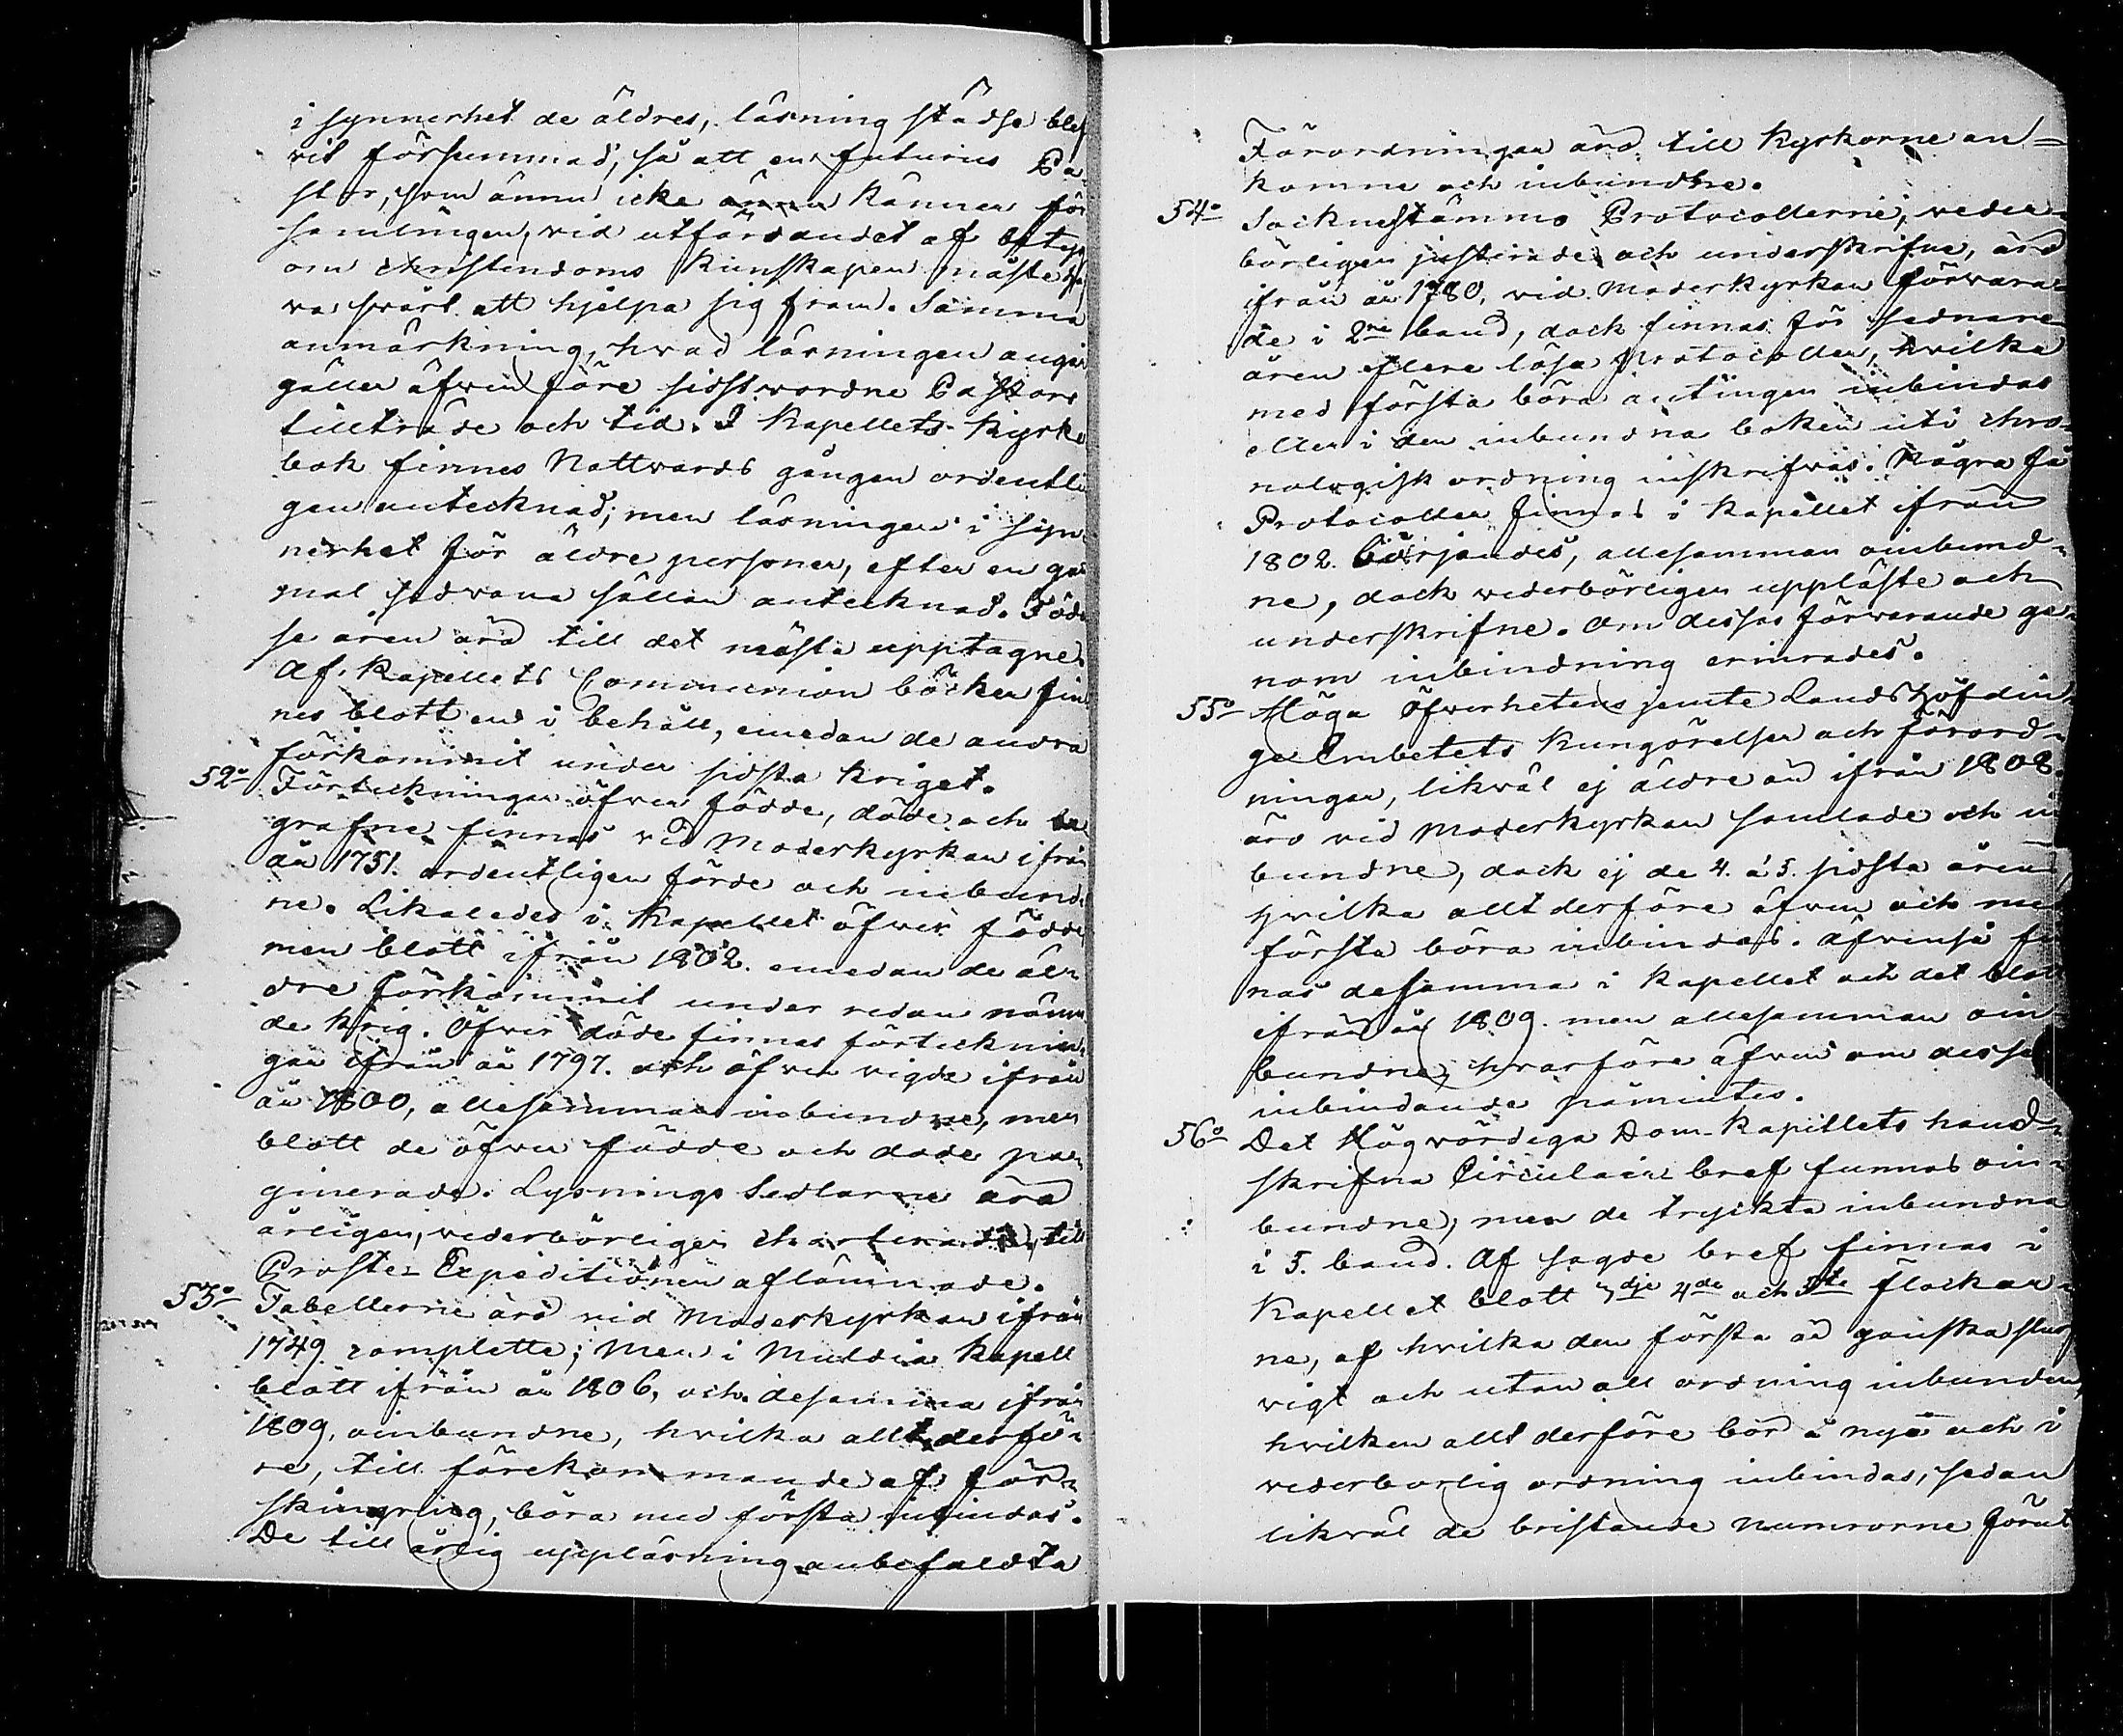 i synnerhet de äldres, läsning städse blef
vit försummad, så att en futurus Pa-
stor, som ännu icke ännu känner för
samlingen, vid utfärdandet af betyg
om christendoms kunskapen måste ha
va svårt att hjelpa sig fram. Samma
anmärkning, hvad läsningen angår
gäller äfven före sidstvordne Pastors
tillträde och tid. I Kapellets Kyrko
bok finnes Nattvards gången ordentli
gen antecknad; men läsningen i syn
nerhet för äldre personer, efter en gam
mal sedvana sällan antecknad. Föde
se åren äro till det mästa upptagne.
Af Kapellets Communion böcker fin
nes blott en i behåll, emedan de andra
förkommit under sidsta kriget.
52o Förteckningar öfver födde, döde och be
grafne finnas vid Moderkyrkan ifrån
år 1751. ordentligen förde och inbund
ne. Likaledes i Kapellet öfver födde
men blott ifrån 1802. emedan de äl-
dre förkommit under redan nämn
de krig. Öfver döde finnas förtecknin-
gar ifrån år 1797. och öfver vigde ifrån
år 1800, allesamman inbundne, men
blott de öfver födde och döde pa-
ginerade. Lysnings Sedlarne äro
årligen, vederbörligen charterade, till
Proste-Expeditionen aflämnade.
53o Tabellerne äro vid Moderkyrkan ifrån
1749 complette; Men i Muldia Kapell
blott ifrån år 1806, och desamma ifrån
1809, oinbundne, hvilka allt derfö-
re, till förekommande af för-
skingring, böra med första inbindas.
De till årlig uppläsning anbefaldta
Förordningar äro till Kyrkorne an=
komne och inbundne.
54o Socknestämmo Protocollerne, veder-
börligen justerade och underskrifne, äro
ifrån år 1780, vid Moderkyrkan förvara-
de i 2ne band, dock finnas för sednare
åren flere lösa protocoller, hvilka
med första böra antingen inbindas
eller i den inbundna boken uti chro-
nologisk ordning inskrifvas. Några få
Protocoller finnas i Kapellet ifrån
1802. börjandes, allesamman oinbund-
ne, dock vederbörligen uppläste och
underskrifne. Om dessas förvarande ge-
nom inbindning erinrades.
55o Höga Öfverhetens jemte Landshöfdin
ge Embetets Kungörelser och förord-
ningar, likväl ej äldre än ifrån 1808.
äro vid Moderkyrkan samlade och in
bundne, dock ej de 4. à 5. sidsta åren,
hvilka allt derföre äfven och med
första böra inbindas. Äfvenså fin
nas desamma i Kapellet och det blott
ifrån år 1809. men allesamman oin
bundne, hvarföre äfven om dessas
inbindande påmintes.
56o Det Högvördiga Dom-Kapitlets hand-
skrifna Circulair bref funnos oin-
bundne, men de tryckta inbundna
i 5. band. Af sagde bref finnas i
Kapellet blott 3dje 4de och 5te flockar-
ne, af hvilka den första är ganska slur
vigt och utan all ordning inbunden,
hvilken allt derföre bör å nyo och i
vederborlig ordning inbindas, sedan
likväl de bristande numrorne förut